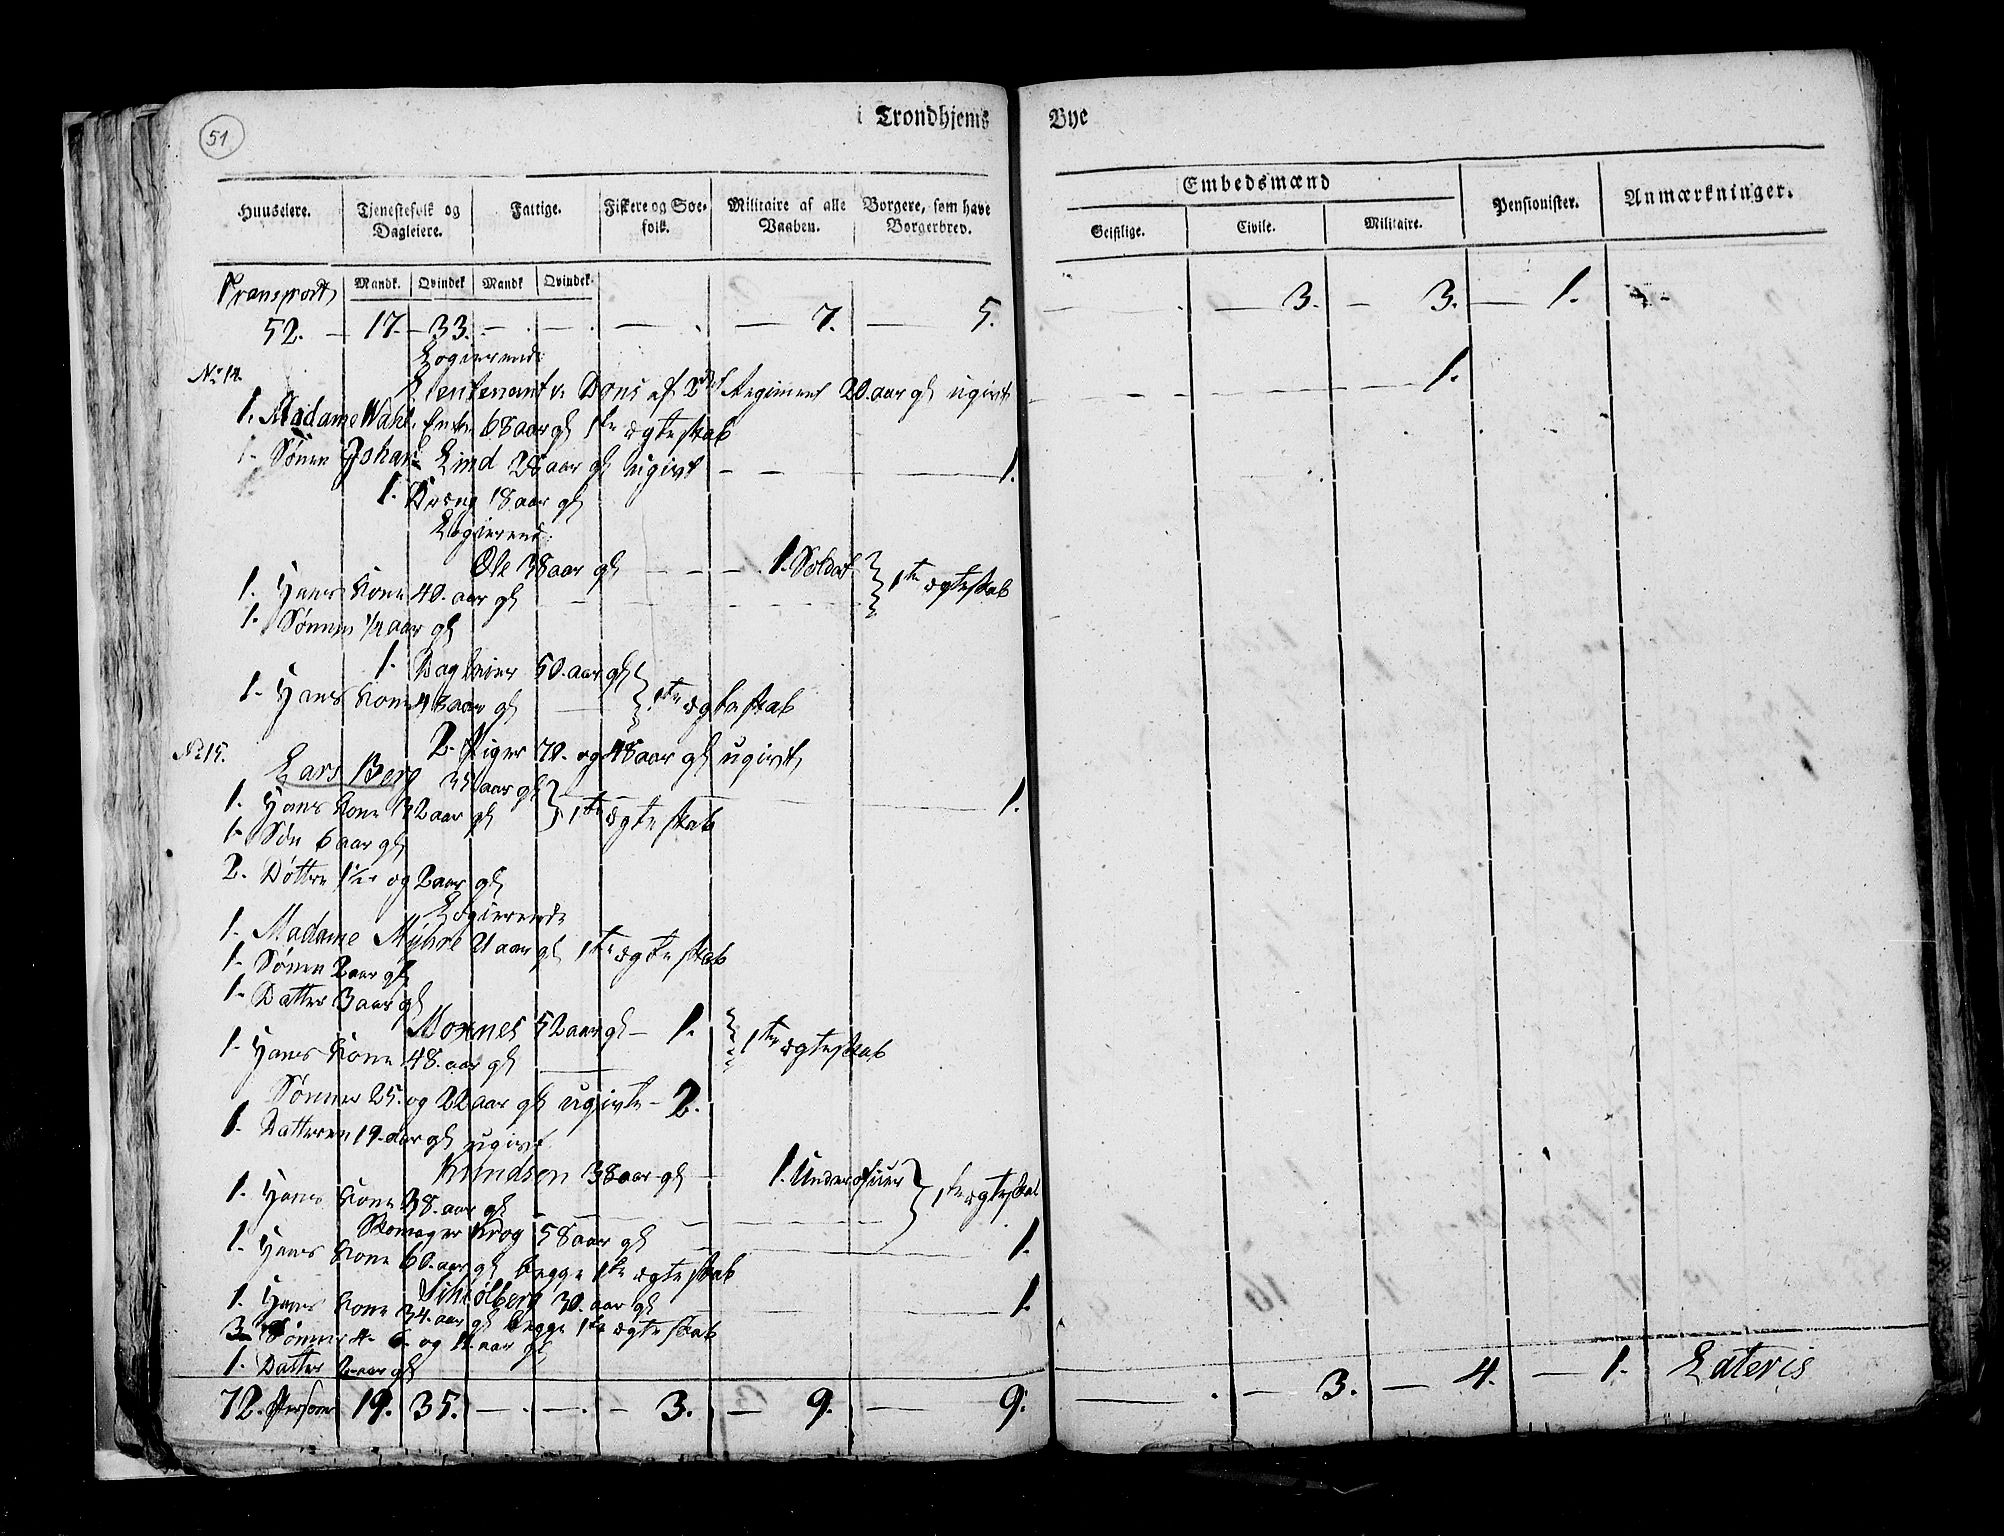 51
i Trondhjems Bye
Huuseiere. Tjenestefolk og Dagleiere. Fattige. Fiskere og Søefolk. Militaire af alle Vaaben. Borgere, som have Borgerbrev. Embedsmænd Geistlige. Civile. Militaire. Pensionister. Anmærkninger.
Mandk. Qvindek Mandk Qvindek.
Transport
52. — 17. — 33. — . — . — . — 7. — 5. — . — 3. — 3. — 1.
Logierende:
No 14. Lieutenant v. Dons af 2det Regiment 20. aar gl ugivt — 1.
1. Madame Wahl, Enke 68 aar gl 1ste ægteskab
1. Sønen Johan Lind 28 aar gl ugivt — 1.
1. Dreng 18 aar gl
Logierend:
Ole 38 aar gl — 1. Soldat
1. Hans Kone 40. aar gl — 1te ægteskab
1. Sønnen 1/4 aar gl
1. Dagleier 50. aar gl
1. Hans Kone 43 aar gl — 1te ægteskab
2. Piger 70. og 48 aar gl ugivt,
No 15. Lars Berg 35 aar gl — 1.
1. Hans Kone 32 aar gl 1te ægteskab
1. Søn 6 aar gl
2. Døttre 1½ og 2 aar gl
Logierende
1. Madame Myhre 21 aar gl 1te ægteskab
1. Sønen 2 aar gl
1. Datter 3 aar gl
Moxnes 52 aar gl — 1.
1. Hans Kone 48. aar gl 1te ægteskab
Sønner 25. og 22 aar gl ugivte — 2.
1. Datteren 19. aar gl ugivt
Knudson 38 aar gl — 1. Underofficer
1. Hans Kone 38. aar gl 1te ægteskab
Skomager Krog 58 aar gl — 1.
1. Hans Kone 60. aar gl begge 1te ægteskab
Schiølberg 30. aar gl — 1.
1. Hans Kone 34. aar gl begge 1te ægteskab
3. Sønner 4. 6. og 11. aar gl
1. Datter 2 aar gl
72. Person 19. 35. — . — . — 3. — 9. — 9. — . — 3. — 4. — 1. Lateris